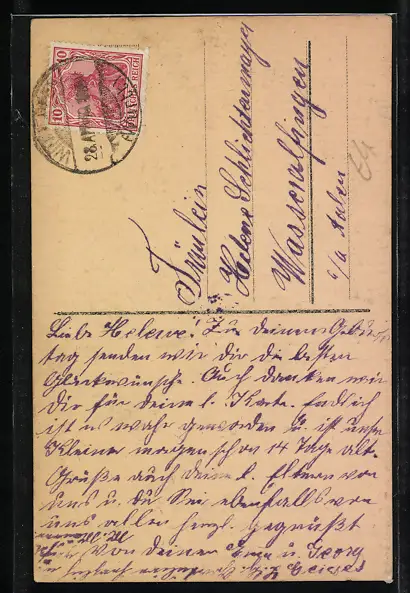 10
10
DEUTSCHES REICH
28 APR
Fräulein
Helene Schlichtermayer
Wasseralfingen
b/a Aalen
Liebe Helene! Zu Deinem Geburts-
tag senden wir Dir die besten
Glückwünsche. Auch danken wir
Dir für deine l. Karte. Endlich
ist es wahr geworden u. ist unser
Kleiner morgen schon 14 Tage alt.
Grüße auch deine l. Eltern von
uns u. Du Sei ebenfalls von
uns allen herzl. gegrüßt
von Deiner u. Georg